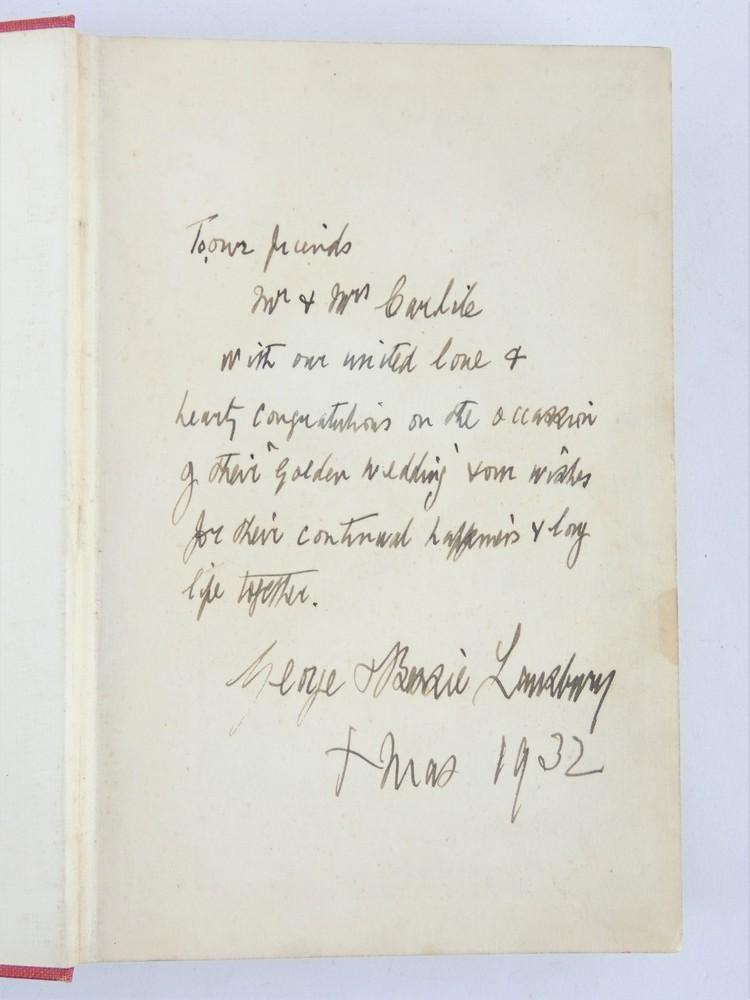 To our friends
Mr & Mrs Carlile
with our united love &
hearty congratulations on the occassion
of their "Golden Wedding" & our wishes
for their continual happiness & long
life together.
George & Bessie Lansbury
Xmas 1932